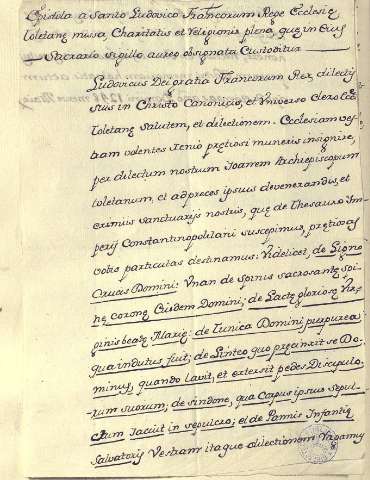 Epistola a Santo Ludovico Francorum Rege Ecclesię
toletanę missa, Charitatis et Religionis plena, quę in Eius
Sacrario sigillo aureo obsignata Custoditur
Ludovicus Dei gratia Francorum Rex, dilectis
suis in Christo Canonicis, et Universo Clero Ecc.
toletanę salutem, et dilectionem. Ecclesiam ves-
tram volentes Xenio prętiosi muneris insignire,
per dilectum nostrum Ioanem Archiepiscopum
toletanum, et ad preces ipsius de venerandis, et
eximiis sanctuarijs nostris, quę de Thesauro Im-
perij Constantinopolitani suscepimus, prętiosas
vobis particulas destinamus: Videlicet, de Ligno
Crucis Domini: Unan de Spinis sacrosantę Spi-
nę coronę Eiusdem Domini; de Lactę gloriosę Vir-
ginis beatę Marię: de Tunica Domini purpurea
qua indutus fuit; de Linteo quo precinxit se Do-
minus, quando lavit, et extersit pedes Discipulo-
rum suorum; de sindone, qua Capus ipsius sepul-
ctum iacuit in sepulcro; et de Pannis Infantię
Salvatoris Vestram itaque dilectionem